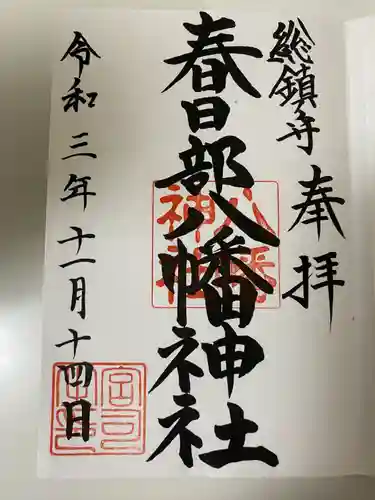 総鎮守
奉拝
春日部八幡神社
令和三年十一月十四日